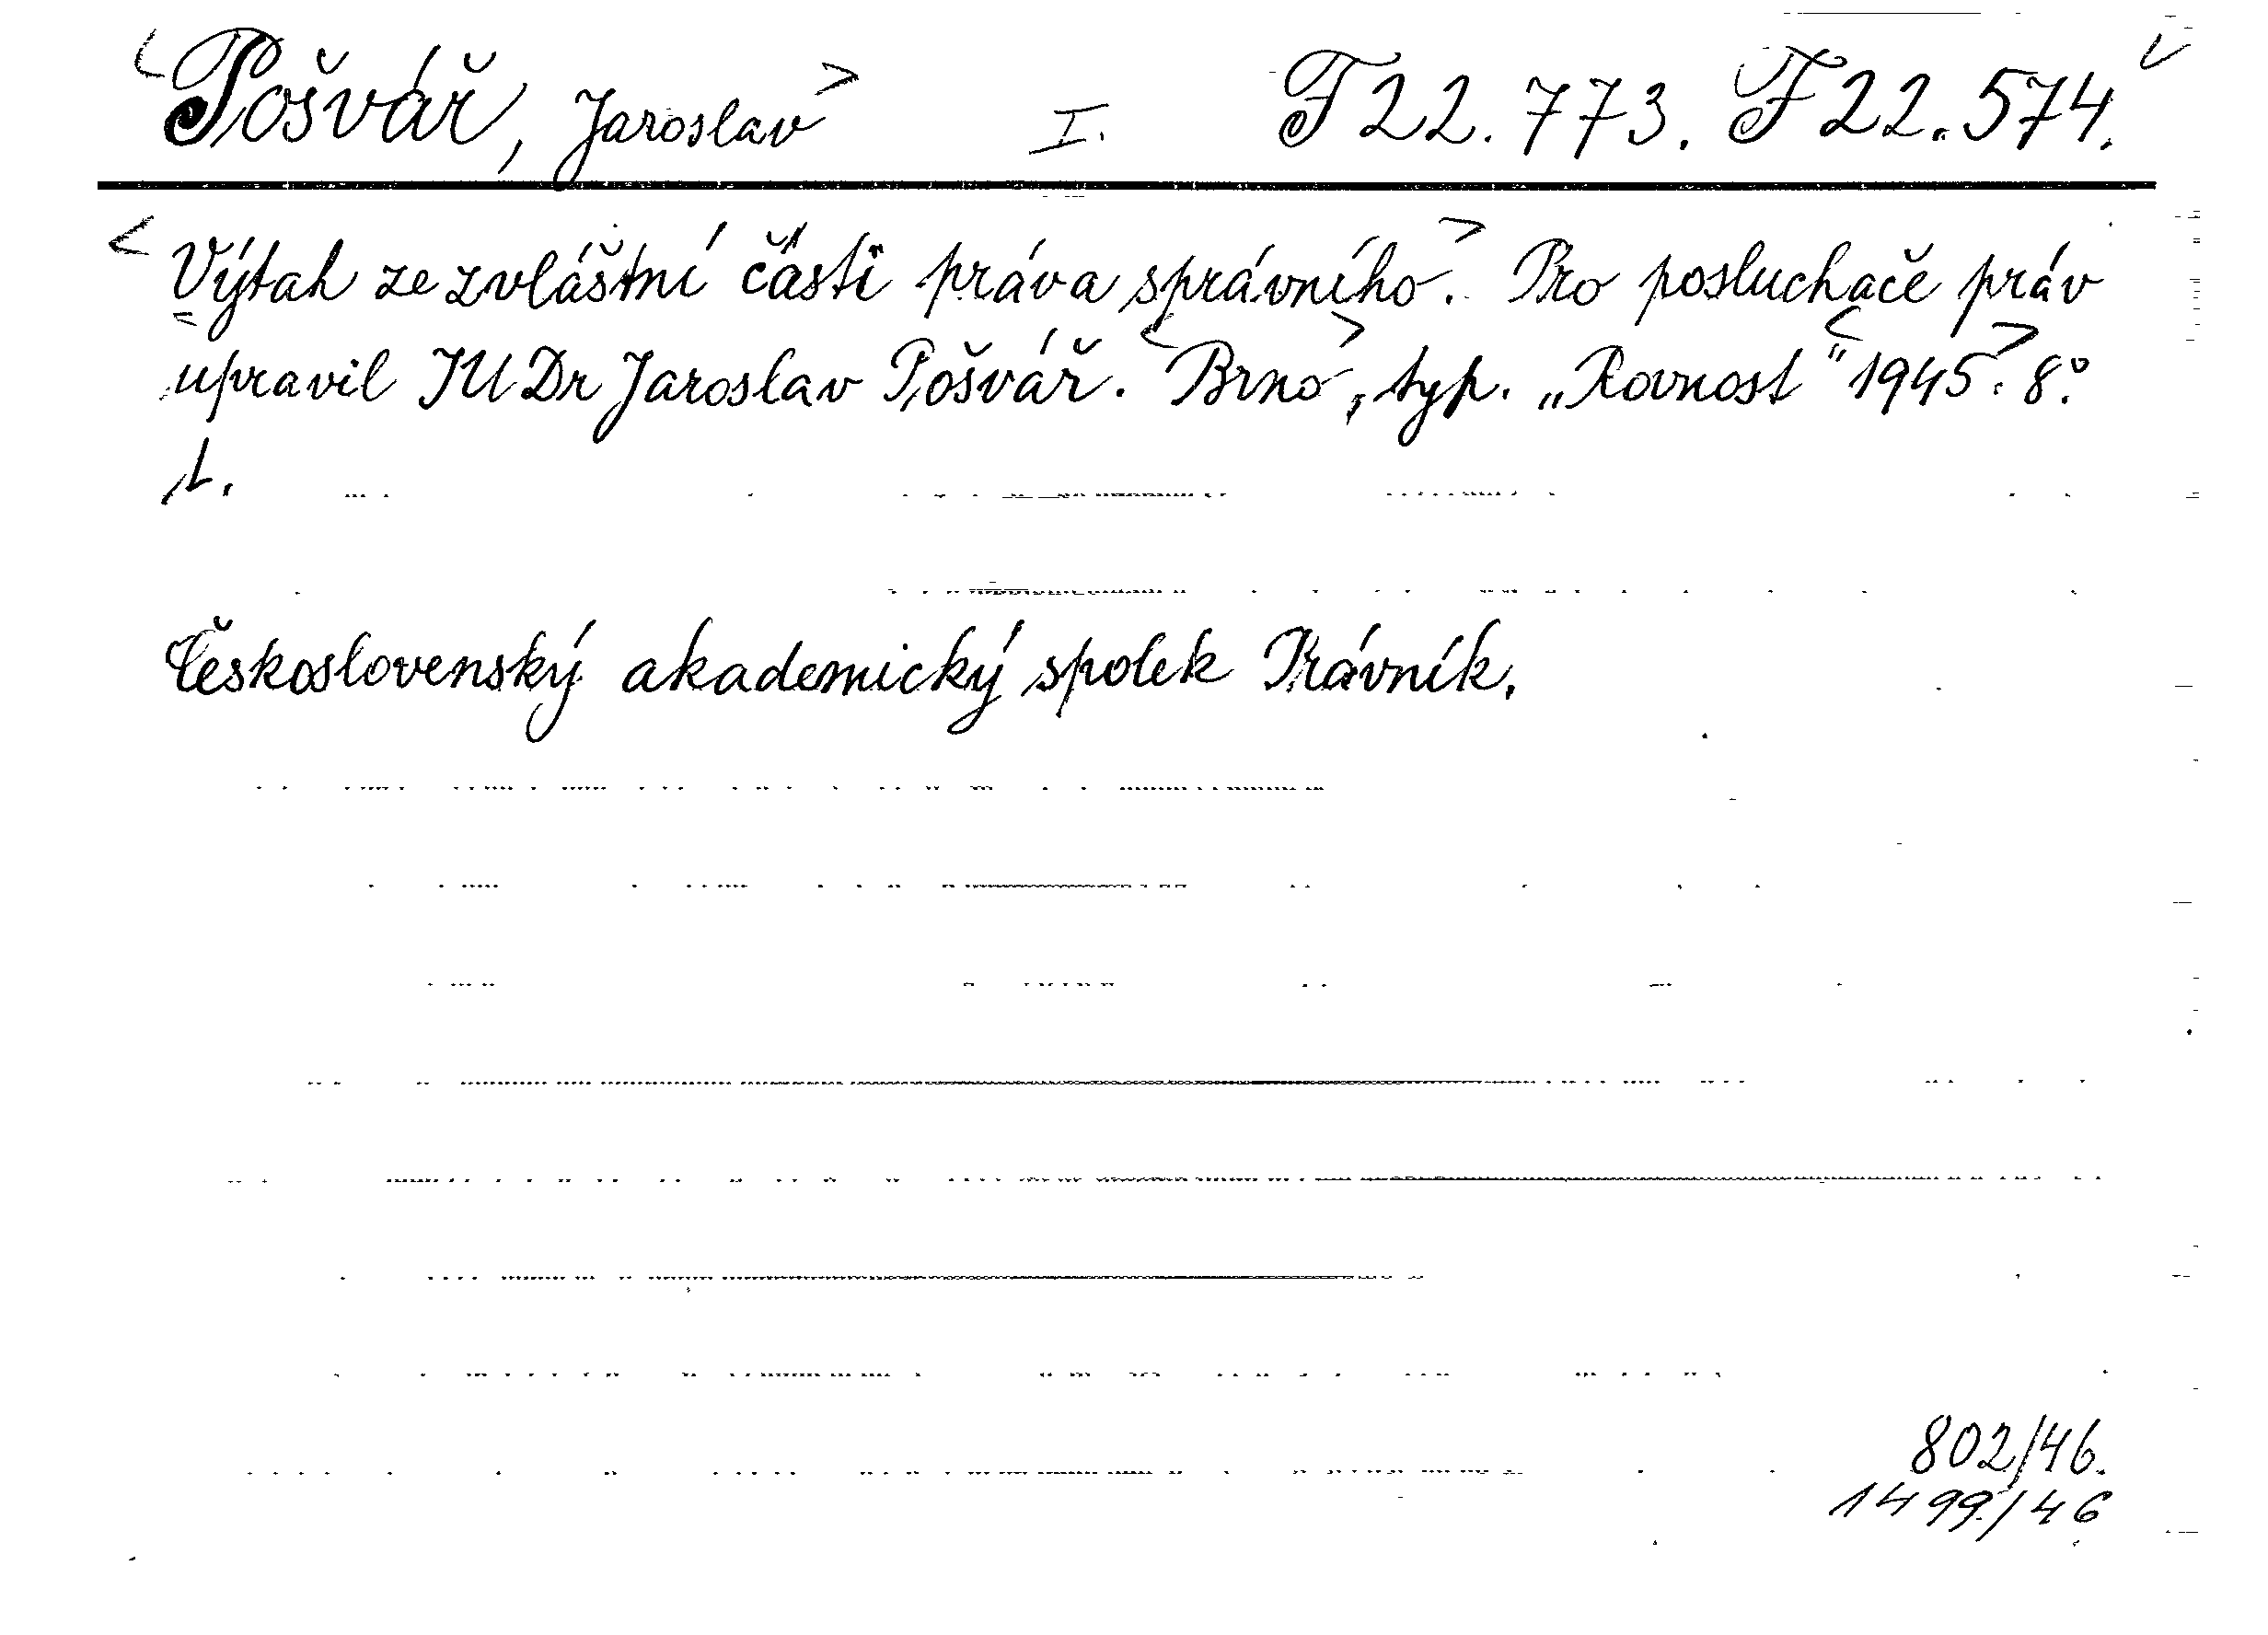 <Pošvář, Jaroslav> I. F 22.773. F 22.574.
<Výtah ze zvláštní části práva správního>. Pro posluchače práv
upravil JUDr Jaroslav Pošvář. <Brno>, typ. „Rovnost“ <1945>. 8°.
1.
Československý akademický spolek Právník.
802/46.
1499/46